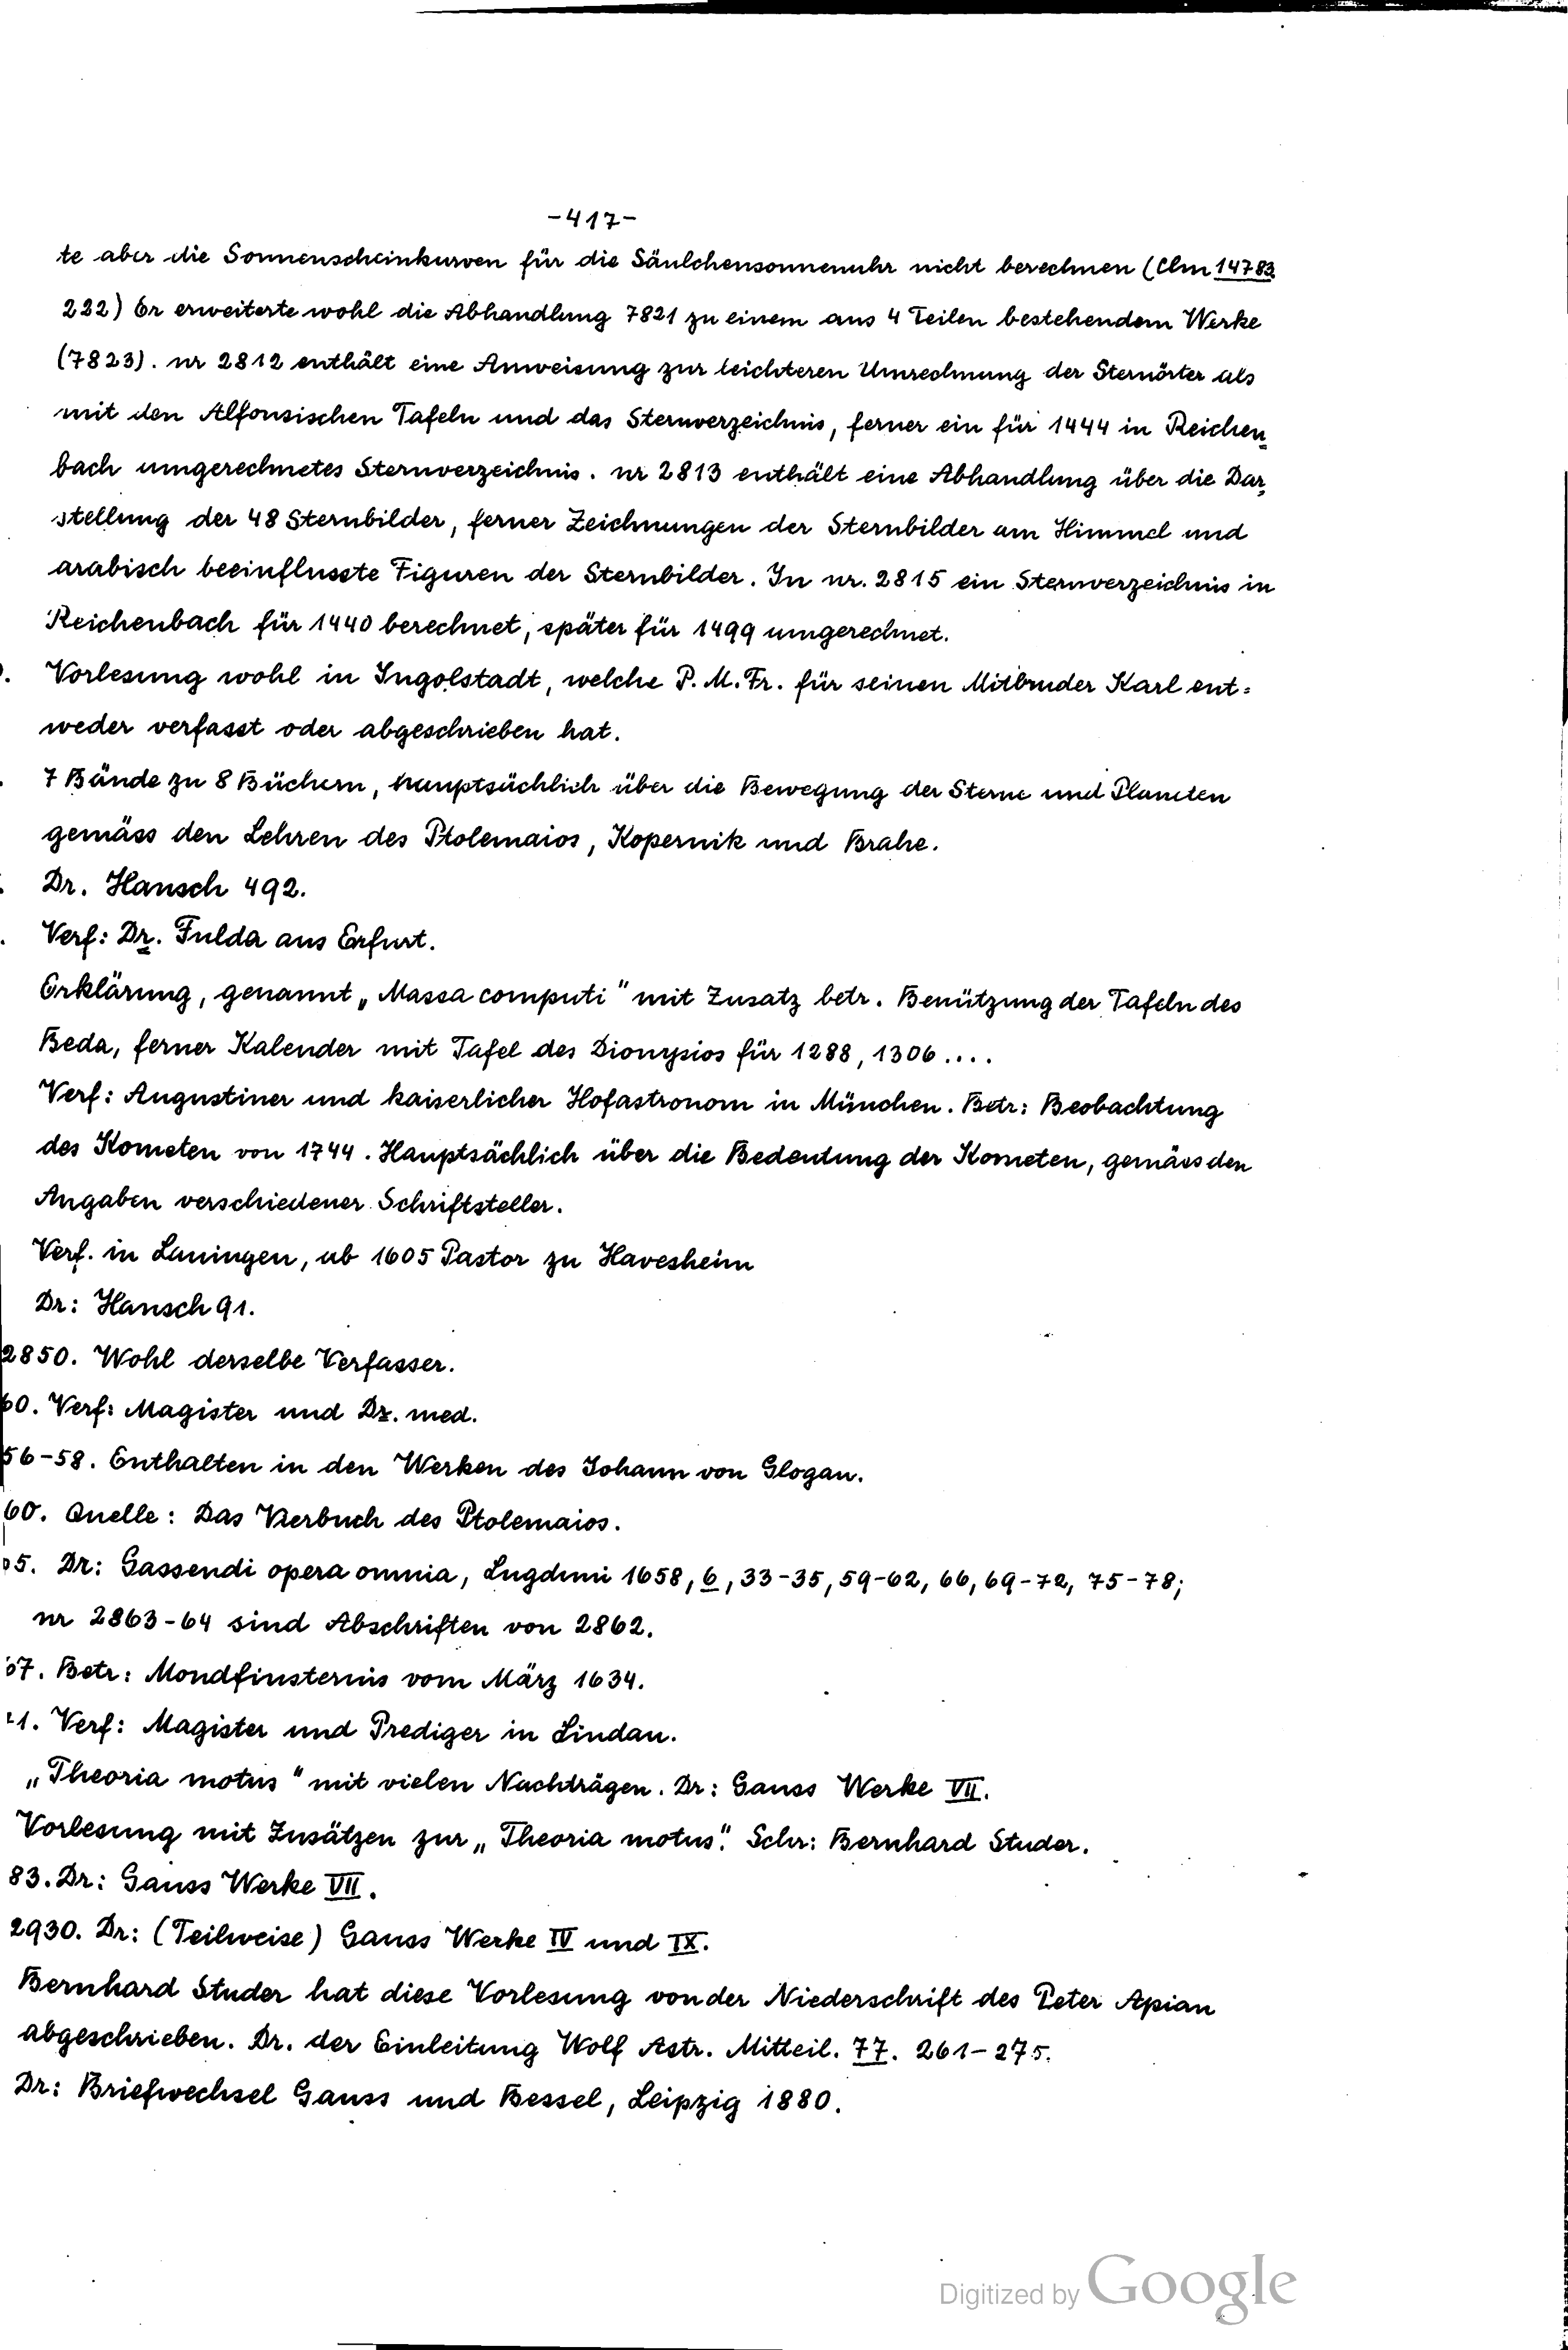 -417-
te aber die Sonnenscheinkurven für die Säulchensonnenuhr nicht berechnen (Clm 14783
222) Er erweiterte wohl die Abhandlung 7821 zu einem aus 4 Teilen bestehendem Werke
(7823). nr 2812 enthält eine Anweisung zur leichteren Umrechnung der Sternörter als
mit den Alfonsischen Tafeln und das Sternverzeichnis, ferner ein für 1444 in Reichen=
bach umgerechnetes Sternverzeichnis. nr 2813 enthält eine Abhandlung über die Dar=
stellung der 48 Sternbilder, ferner Zeichnungen der Sternbilder am Himmel und
arabisch beeinflusste Figuren der Sternbilder. In nr. 2815 ein Sternverzeichnis in
Reichenbach für 1440 berechnet, später für 1499 umgerechnet.
Vorlesung wohl in Ingolstadt, welche P. M. Fr. für seinen Mitbruder Karl ent=
weder verfasst oder abgeschrieben hat.
7 Bände zu 8 Büchern, hauptsächlich über die Bewegung der Sterne und Planeten
gemäss den Lehren des Ptolemaios, Kopernik und Brahe.
Dr. Hansch 492.
Verf: Dr. Fulda aus Erfurt.
Erklärung, genannt „Massa computi" mit Zusatz betr. Benützung der Tafeln des
Beda, ferner Kalender mit Tafel des Dionysios für 1288, 1306....
Verf: Augustiner und kaiserlicher Hofastronom in München. Betr: Beobachtung
des Kometen von 1744. Hauptsächlich über die Bedeutung der Kometen, gemäss den
Angaben verschiedener Schriftsteller.
Verf. in Lauingen, ab 1605 Pastor zu Havesheim
Dr: Hansch 91.
2850. Wohl derselbe Verfasser.
60. Verf: Magister und Dr. med.
56-58. Enthalten in den Werken des Johann von Glogau.
60. Quelle: Das Vierbuch des Ptolemaios.
5. Dr: Gassendi opera omnia, Lugduni 1658, 6, 33-35, 59-62, 66, 69-72, 75-78;
nr 2863-64 sind Abschriften von 2862.
67. Betr: Mondfinsternis vom März 1634.
1. Verf: Magister und Prediger in Lindau.
„Theoria motus" mit vielen Nachträgen. Dr: Gauss Werke VII.
Vorlesung mit Zusätzen zur „Theoria motus". Schr: Bernhard Studer.
83. Dr: Gauss Werke VII.
2930. Dr: (Teilweise) Gauss Werke IV und IX.
Bernhard Studer hat diese Vorlesung von der Niederschrift des Peter Apian
abgeschrieben. Dr. der Einleitung Wolf Astr. Mitteil. 77. 261-275.
Dr: Briefwechsel Gauss und Bessel, Leipzig 1880.
Digitized by Google